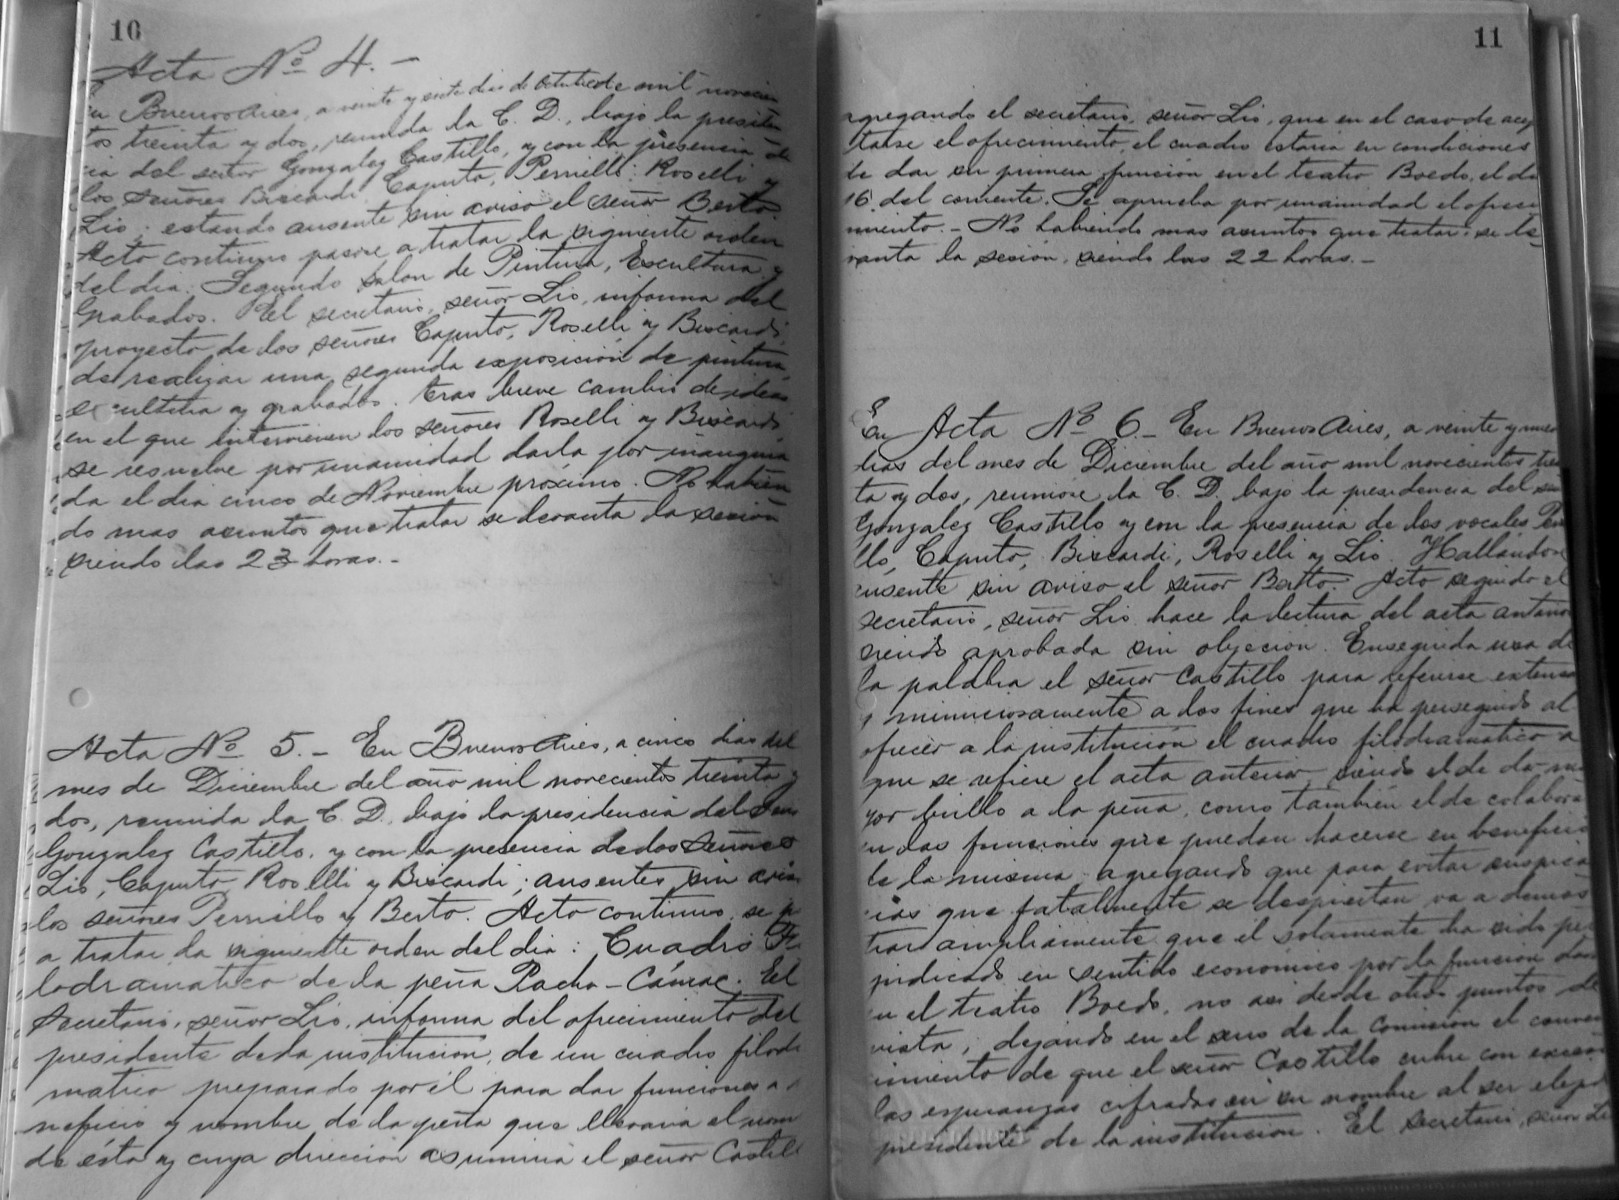 10
Acta Nº 4.-
En Buenos Aires, a veinte y siete dias de octubre de mil novecien
tos treinta y dos, reunida la C. D., bajo la presiden
cia del señor Gonzalez Castillo, y con la presencia de
los señores Biscardi, Caputo, Pernillo, Roselli y
Lio; estando ausente sin aviso el señor Berto.
Acto continuo pasose a tratar la siguiente orden
del dia: Segundo salon de Pintura, Escultura y
Grabados. El secretario, señor Lio, informa del
proyecto de los señores Caputo, Roselli y Biscardi,
de realizar una segunda exposición de pintura,
escultura y grabados. Tras breve cambio de ideas
en el que intervienen los señores Roselli y Biscardi,
se resuelve por unanimidad darla por inaugura
da el dia cinco de Noviembre próximo. No habien
do mas asuntos que tratar se levanta la sesión
siendo las 23 horas.-
Acta Nº 5.- En Buenos Aires, a cinco dias del
mes de Diciembre del año mil novecientos treinta y
dos, reunida la C. D. bajo la presidencia del señor
Gonzalez Castillo, y con la presencia de los señores
Lio, Caputo, Roselli y Biscardi; ausentes sin aviso
los señores Pernillo y Berto. Acto continuo, se p
a tratar la siguiente orden del dia: Cuadro Fi
lodramatico de la peña Pacha-Cámac. El
secretario, señor Lio, informa del ofrecimiento del
presidente de la institucion, de un cuadro filodra
matico preparado por él para dar funciones a be
neficio y nombre de la peña que llevaria el nom
de ésta y cuya direccion asumiria el señor Castill
11
agregando el secretario, señor Lio, que en el caso de acep
tarse el ofrecimiento, el cuadro estaria en condiciones
de dar su primera función en el teatro Boedo, el dia
16 del corriente. Se aprueba por unanimidad el ofreci
miento.- No habiendo mas asuntos que tratar se le
vanta la sesión, siendo las 22 horas.-
En Acta Nº 6.- En Buenos Aires, a veinte y nueve
dias del mes de Diciembre del año mil novecientos trein
ta y dos, reunióse la C. D. bajo la presidencia del señor
Gonzalez Castillo y con la presencia de los vocales Perni
llo, Caputo, Biscardi, Roselli y Lio. Hallándose
ausente sin aviso el señor Berto. Acto seguido el
secretario, señor Lio hace la lectura del acta anterior
siendo aprobada sin objecion. Enseguida usa de
la palabra el señor Castillo para referirse extensa
y minuciosamente a los fines que ha perseguido al
ofrecer a la institución el cuadro filodramatico a
que se refiere el acta anterior, siendo el de da ma
yor brillo a la peña, como también el de colaborar
en las funciones que puedan hacerse en beneficio
de la misma, agregando que para evitar suspica
cias que fatalmente se despiertan va a demos
trar ampliamente que el solamente ha sido per
judicado en sentido económico por la función dada
en el teatro Boedo, no asi desde otros puntos de
vista, dejando en el seno de la Comision el conven
cimiento de que el señor Castillo cubre con exceso
las esperanzas cifradas en su nombre al ser elegido
presidente de la institucion. El secretario, señor Lio